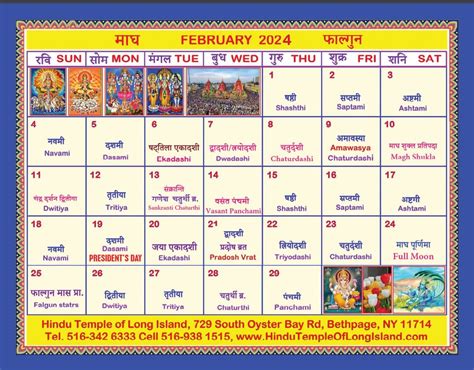 माघ FEBRUARY 2024 फाल्गुन
रवि SUN सोम MON मंगल TUE बुध WED गुरु THU शुक्र FRI शनि SAT
1 2 3
षष्ठी सप्तमी अष्टमी
Shasthi Saptami Ashtami
4 5 6 7 8 9 10
नवमी दशमी षट्तिला एकादशी द्वादशी/त्रयोदशी चतुर्दशी अमावस्या माघ शुक्ल प्रतिपदा
Navami Dasami Ekadashi Dwadashi Chaturdashi Amawasya Magh Shukla
Chaturdashi
11 12 13 14 15 16 17
द्वितीया तृतीया संक्रान्ति वसंत पंचमी षष्ठी सप्तमी अष्टमी
गणेश चतुर्थी
Dwitiya Tritiya Sankranti Chaturthi Vasant Panchami Shasthi Saptami Ashtami
18 19 20 21 22 23 24
नवमी दशमी जया एकादशी द्वादशी त्रियोदशी चतुर्दशी माघ पूर्णिमा
प्रदोष व्रत
Navami Dasami Ekadashi Pradosh Vrat Triyodashi Chaturdashi Full Moon
PRESIDENT'S DAY
25 26 27 28 29
फाल्गुन मास प्रा. द्वितीया तृतीया चतुर्थी चतुर्थी
Falgun statrs Dwitiya Tritiya Chaturthi Chaturthi
Hindu Temple of Long Island, 729 South Oyster Bay Rd, Bethpage, NY 11714
Tel. 516-342 6333 Cell 516-938 1515, www.HinduTempleOfLongIsland.com